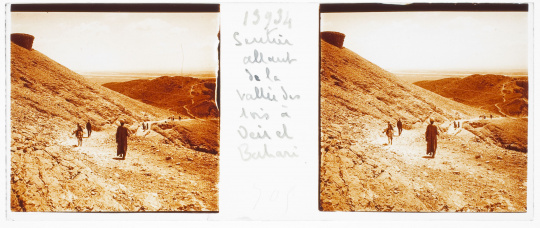 13934
Sentier
allant
de la
vallée des
rois à
Deir el
Bahari